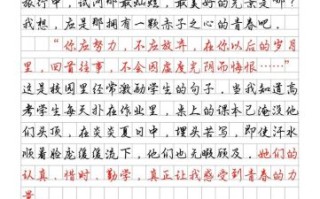 旅行中，试问那最灿烂，最美好的光景是哪？
我想，应是那拥有一颗赤子之心的青春吧。
“你应努力，不应放弃，在你以后的岁月
里，回首往事，不会因虚度光阴而悔恨……”
这是校园里经常激励学生的句子，当我知道高
考学生每天扑在作业里，桌上的课本已淹没他
们头顶，在炎炎夏日中，埋头苦写，即使汗水
顺着脸庞缓缓流下，他们也无暇顾及，她们的
认真，惜时，勤学，真正让我感受到青春的力
量